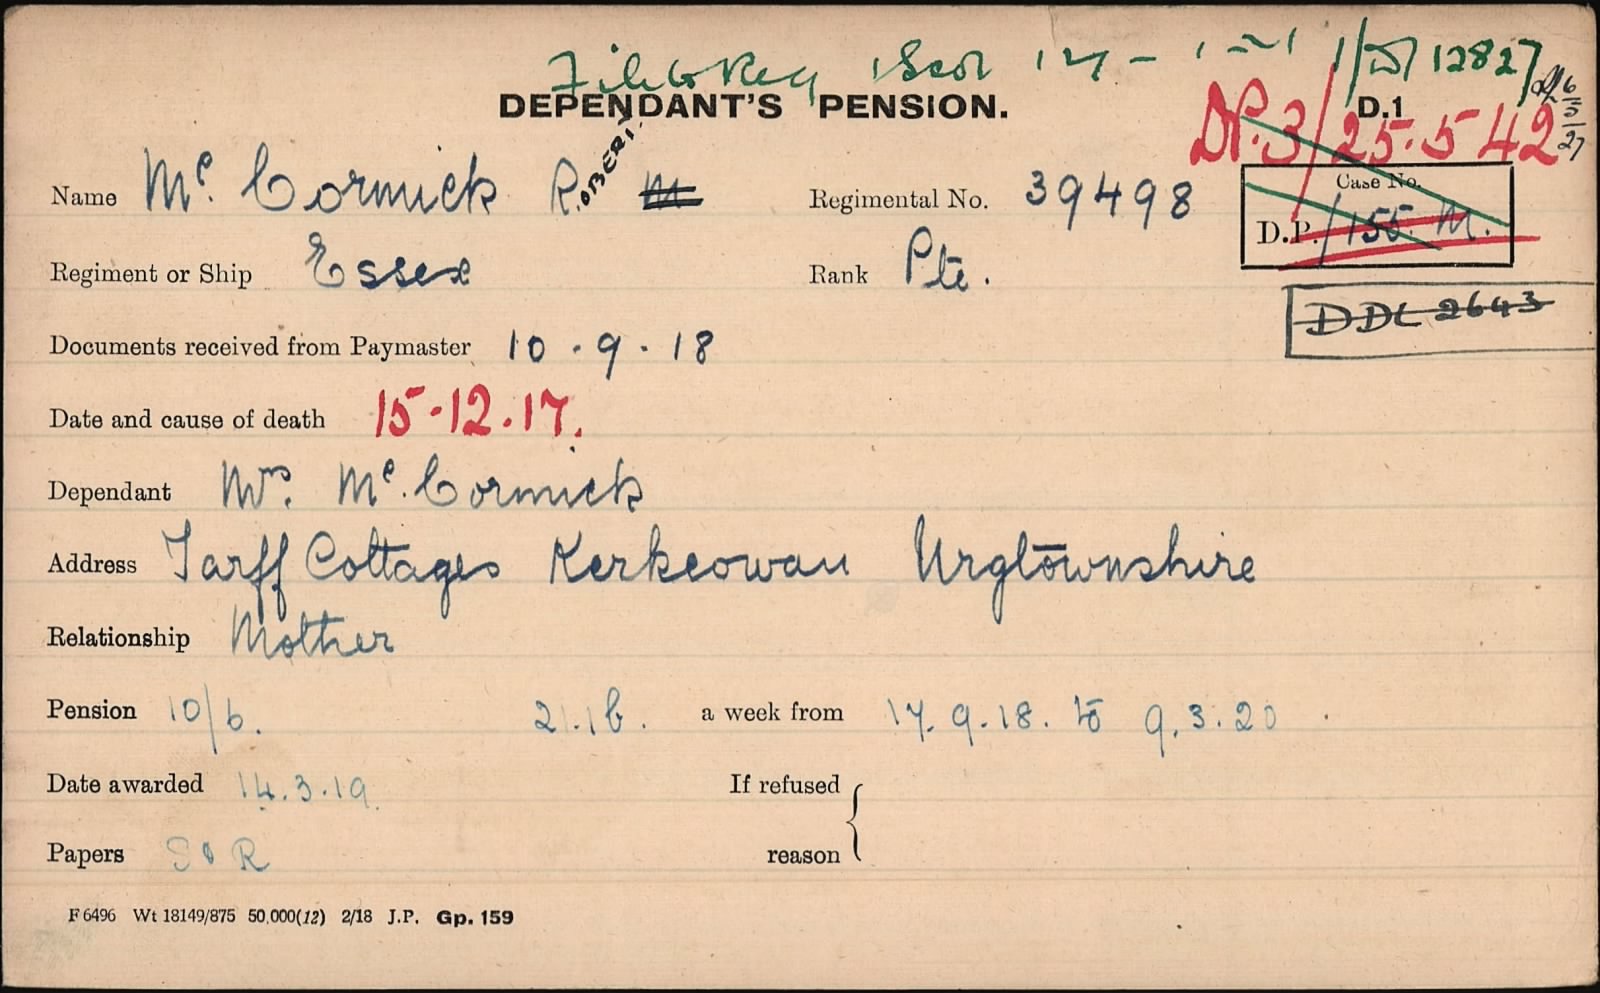 File to Reg 1 Scot 1/D/12827
DEPENDANT'S PENSION. D.1
6/5/27
DP.3/25.542
Name Mc. Cormick R. OBERT M Regimental No. 39498
Case No.
D.P. /155. M.
Regiment or Ship Essex Rank Pte.
DDL 2643
Documents received from Paymaster 10.9.18
Date and cause of death 15-12.17.
Dependant Mrs. Mc. Cormick
Address Tarff Cottages Kerkcowan Urgtownshire
Relationship Mother
Pension 10/6. 21.1b. a week from 17.9.18. to 9.3.20
Date awarded 14.3.19. If refused
Papers S o R reason
F 6496 Wt 18149/875 50,000(12) 2/18 J.P. Gp. 159